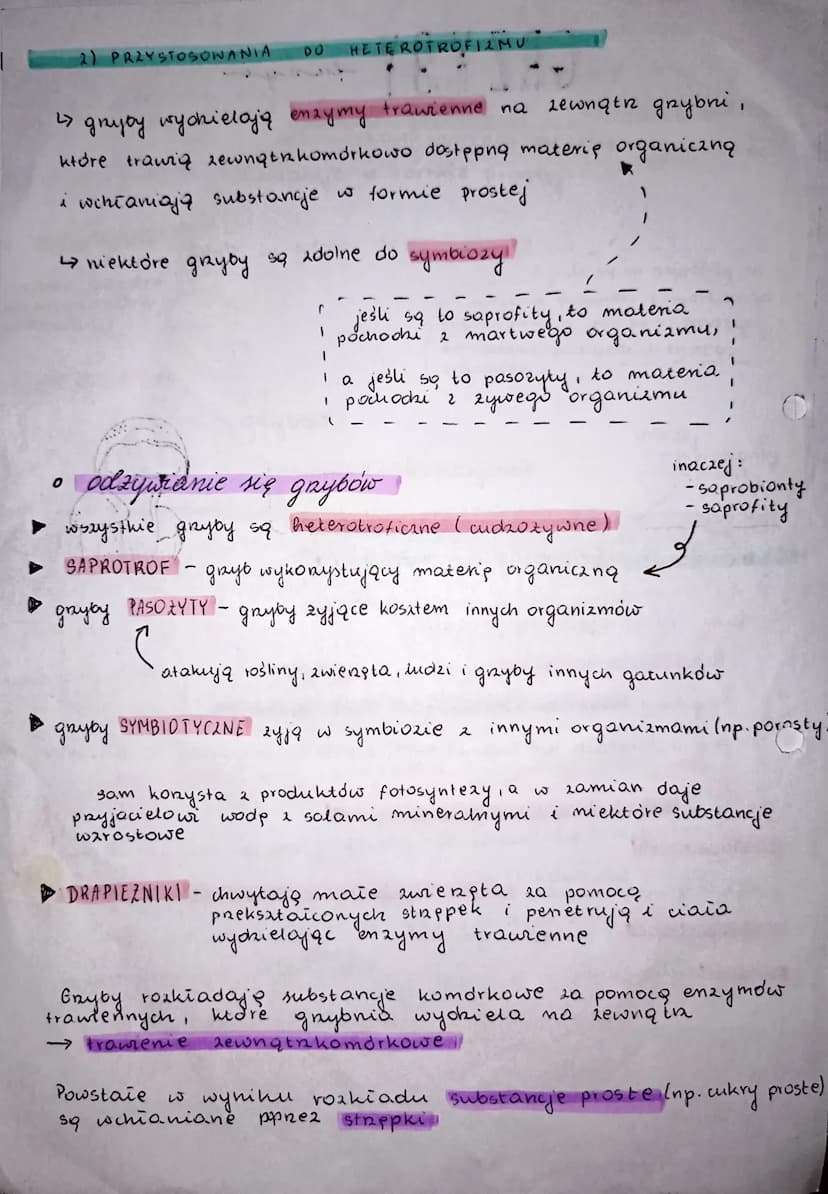 2) PRZYSTOSOWANIA DO HETEROTROFIZMU
↳ grzyby wydzielają enzymy trawienne na zewnątrz grzybni,
które trawią zewnątrzkomórkowo dostępną materię organiczną
i wchłaniają substancje w formie prostej
↳ niektóre grzyby są zdolne do symbiozy
jeśli są to saprofity, to materia
pochodzi z martwego organizmu,
a jeśli są to pasożyty, to materia
pochodzi z żywego organizmu
inaczej:
- saprobionty
- saprofity
o odżywianie się grzybów
▶ wszystkie grzyby są heterotroficzne (cudzożywne)
▶ SAPROTROF - grzyb wykorzystujący materię organiczną
▶ grzyby PASOŻYTY - grzyby żyjące kosztem innych organizmów
atakują rośliny, zwierzęta, ludzi i grzyby innych gatunków
▶ grzyby SYMBIOTYCZNE żyją w symbiozie z innymi organizmami (np. porosty)
sam korzysta z produktów fotosyntezy, a w zamian daje
przyjacielowi wodę z solami mineralnymi i niektóre substancje
wzrostowe
▶ DRAPIEŻNIKI - chwytają małe zwierzęta za pomocą
przekształconych strzępek i penetrują i ciała
wydzielając enzymy trawienne
Grzyby rozkładają substancje komórkowe za pomocą enzymów
trawiennych, które grzybnia wydziela na zewnątrz
→ trawienie zewnątrzkomórkowe
Powstałe w wyniku rozkładu substancje proste (np. cukry proste)
są wchłaniane pprzez strzępki